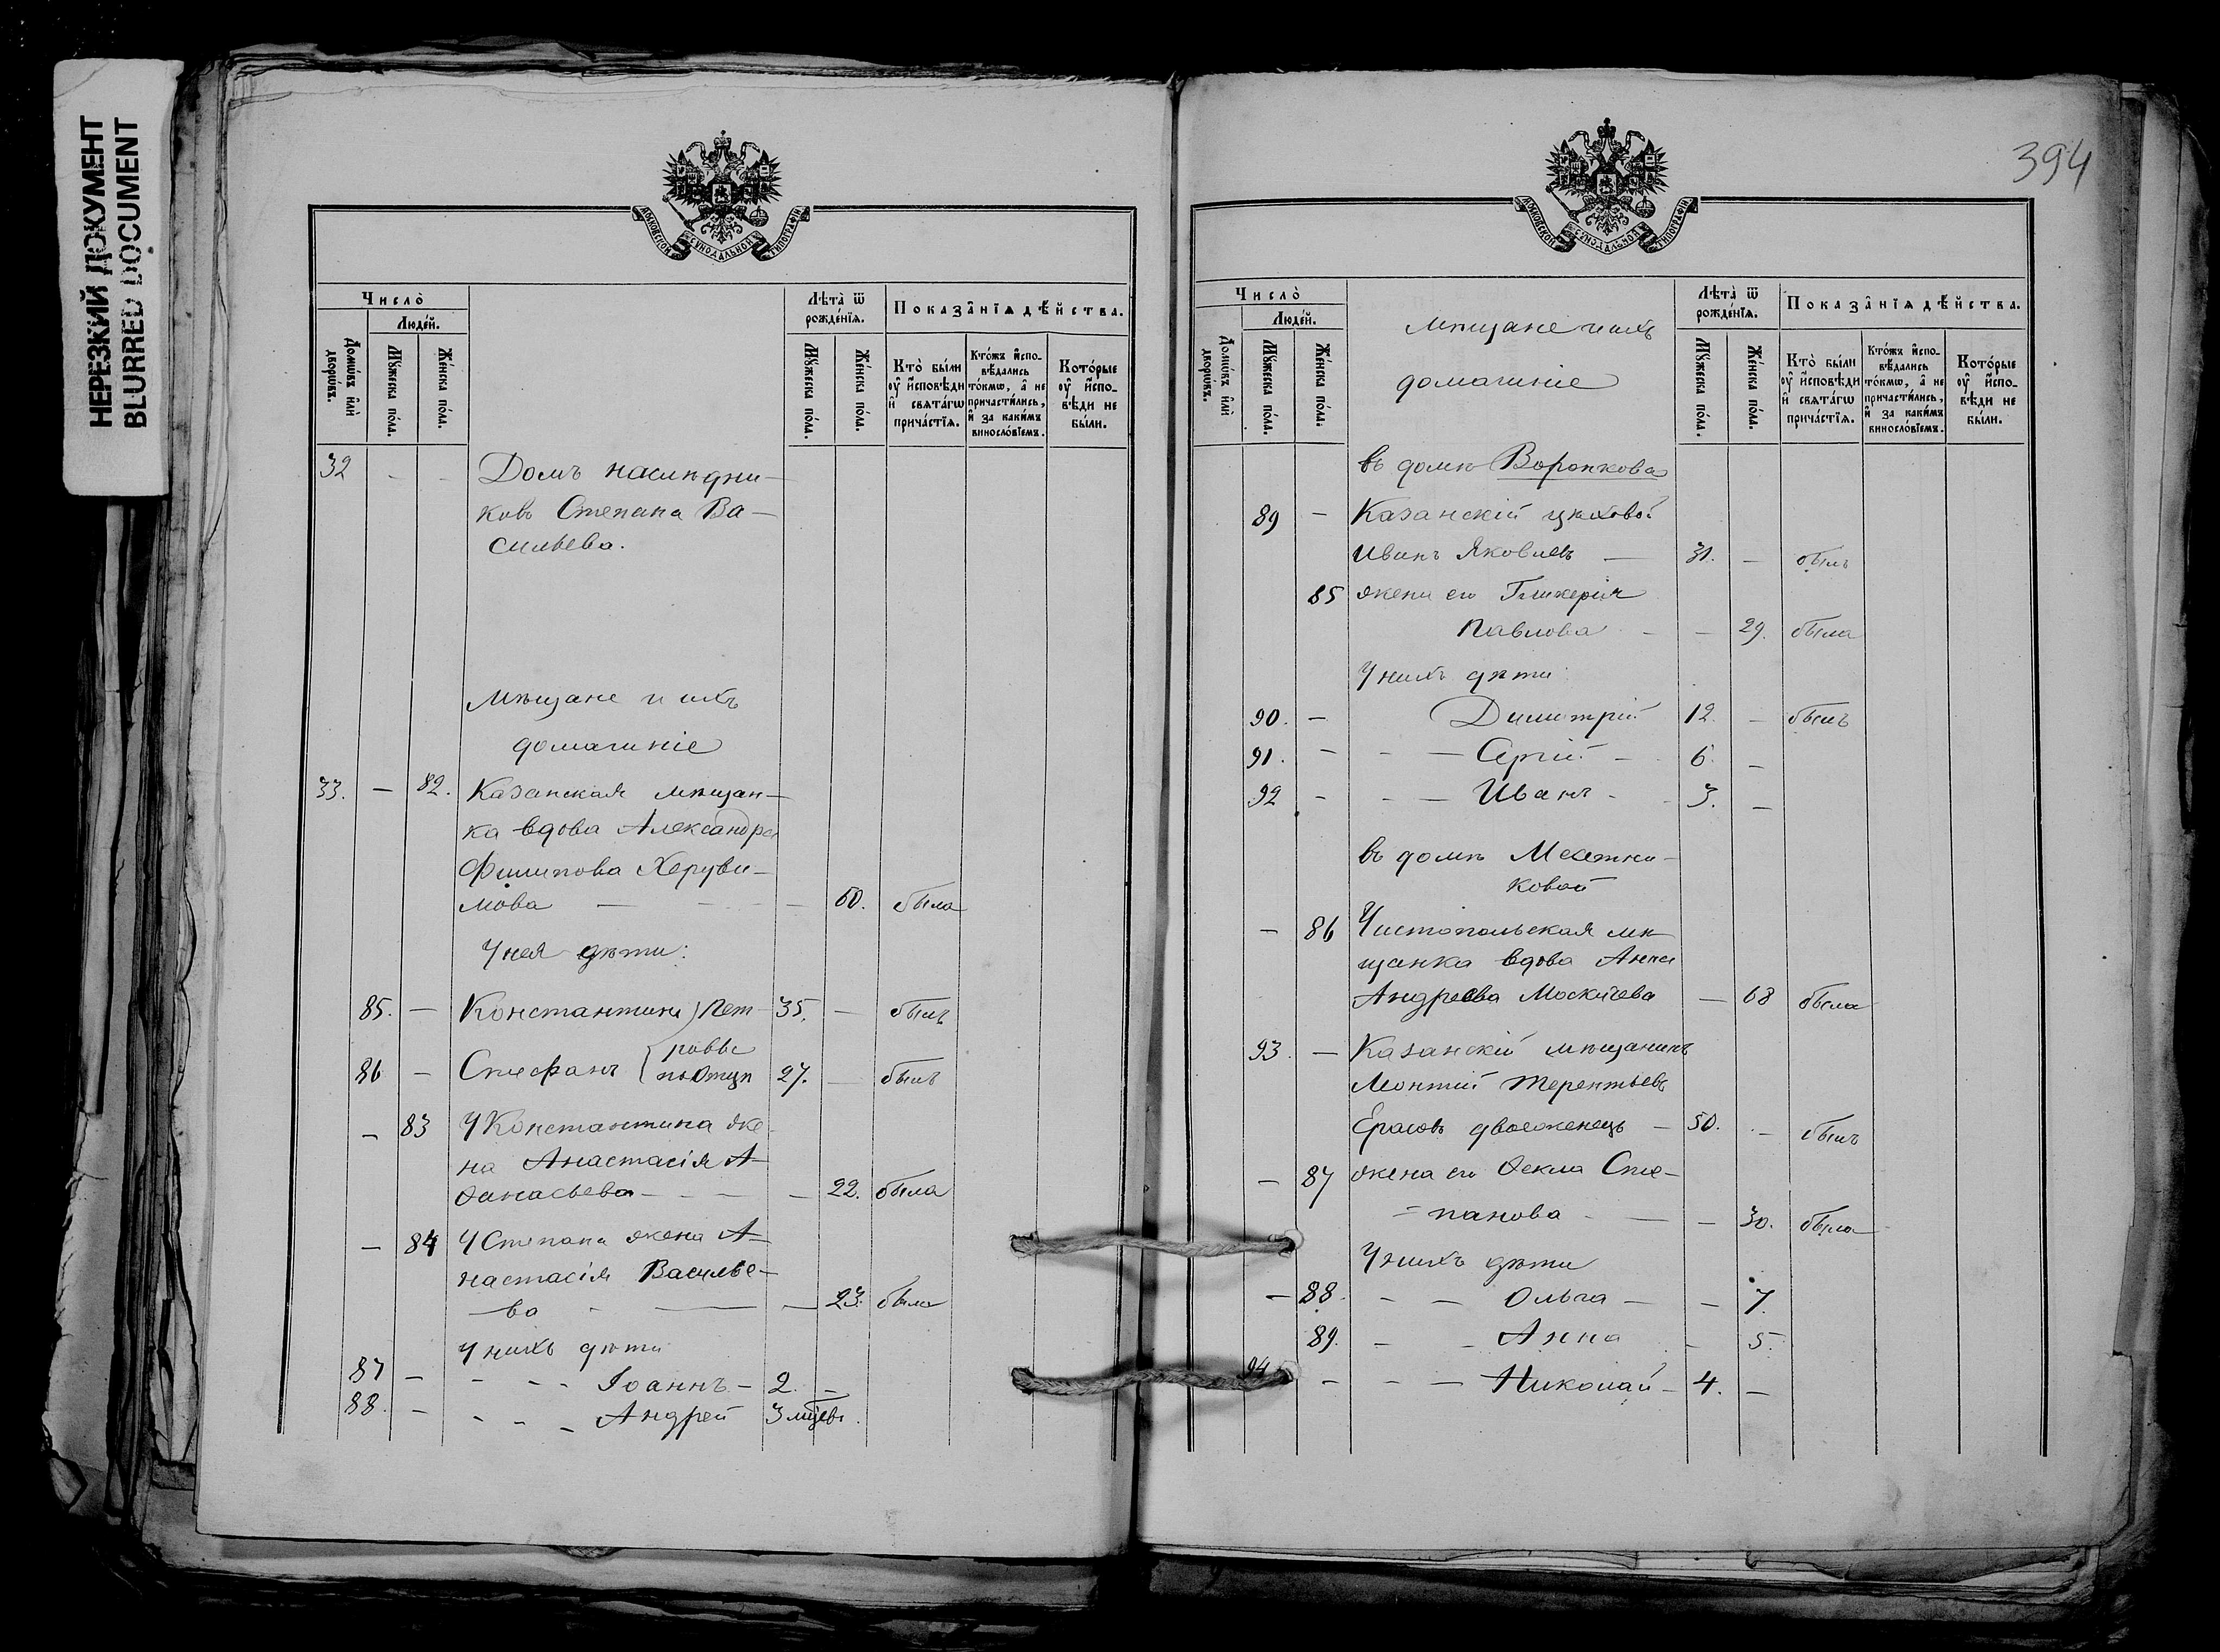 НЕРЕЗКИЙ ДОКУМЕНТ
BLURRED DOCUMENT
МОСКОВСКОЙ СѴНОДАЛЬНОЙ ТИПОГРАФІИ
Число̀
Людей.
Домѡвъ и҆лѝ дворѡвъ.
Мꙋжеска пола.
Женска пола.
Лѣта̀ ѿ рожденїѧ.
Мꙋжеска пола.
Женска пола.
Показанїѧ дѣйства.
Кто̀ были ᲂу҆ и҆сповѣди и҆ свѧтагѡ причастїѧ.
Ктожъ и҆сповѣдались токмѡ, а҆ не причастились, и҆ за какимъ винословїемъ.
Которые ᲂу҆ и҆сповѣди не были.
32 - - Домъ наслѣдни-
ковъ Степана Ва-
сильева.
Мѣщане и ихъ
домашніе
33. - 82. Казанская мѣщан-
ка вдова Александра
Филипова Херуви-
мова - - - - 60. была
У нея дѣти:
85. - Константинъ) Пет- 35. - былъ
ровы
86 - Стефанъ { по отцу 27. - былъ
- 83 У Константина же-
на Анастасія А-
ѳанасьева - - - - 22. была
- 84 У Степана жена А-
настасія Василье-
ва - - - 23. была
У нихъ дѣти
87 - - - - Іоаннъ - 2. -
88. - - - - Андрей 3 мѣсцевъ.
394
МОСКОВСКОЙ СѴНОДАЛЬНОЙ ТИПОГРАФІИ
Число̀
Людей.
Домѡвъ и҆лѝ дворѡвъ.
Мꙋжеска пола.
Женска пола.
Мѣщане и ихъ
домашніе
Лѣта̀ ѿ рожденїѧ.
Мꙋжеска пола.
Женска пола.
Показанїѧ дѣйства.
Кто̀ были ᲂу҆ и҆сповѣди и҆ свѧтагѡ причастїѧ.
Ктожъ и҆сповѣдались токмѡ, а҆ не причастились, и҆ за какимъ винословїемъ.
Которые ᲂу҆ и҆сповѣди не были.
въ домѣ Воронкова
89 - Казанскій цеховой
Иванъ Яковлевъ - 31. - былъ
85 жена его Гликерія
Павлова - - 29. была
У нихъ дѣти:
90. - Димитрій 12. - былъ
91. - - - Сергій - 6. -
92 - - - Иванъ - 3. -
въ домѣ
ковой
- 86 Чистопольская мѣ
щанка вдова Анна
Андреева Москичева - 68 была
93. - Казанскій мѣщанинъ
Терентьевъ
Ерасовъ двоеженецъ - 50. - былъ
- 87 жена его Ѳекла Сте-
- панова - - - 30. была
У нихъ дѣти
- 88. - - Ольга - - 7.
89. - - Анна - 5.
94 - - - Николай - 4. -